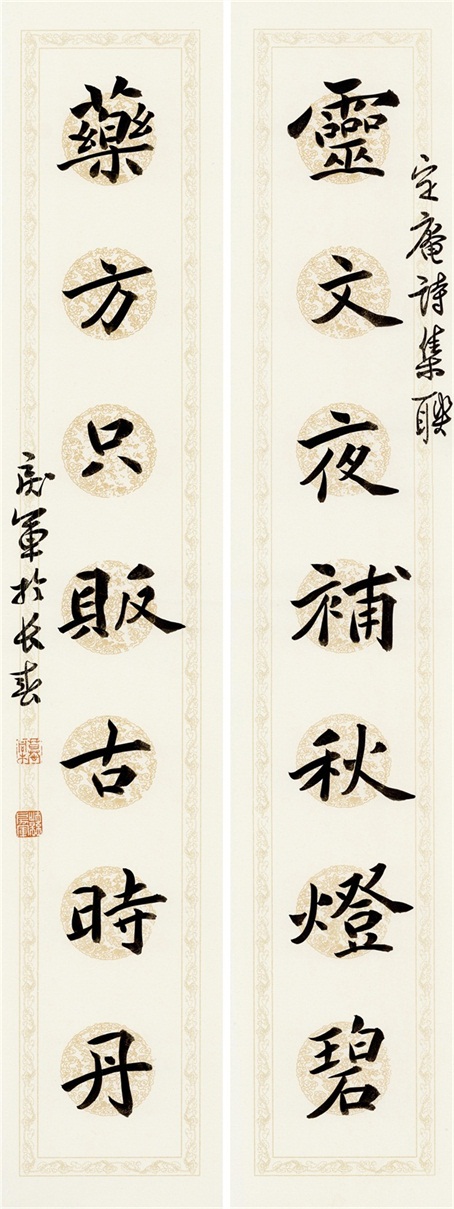 定庵詩集聯
靈文夜補秋燈碧
藥方只販古時丹
軍於长春